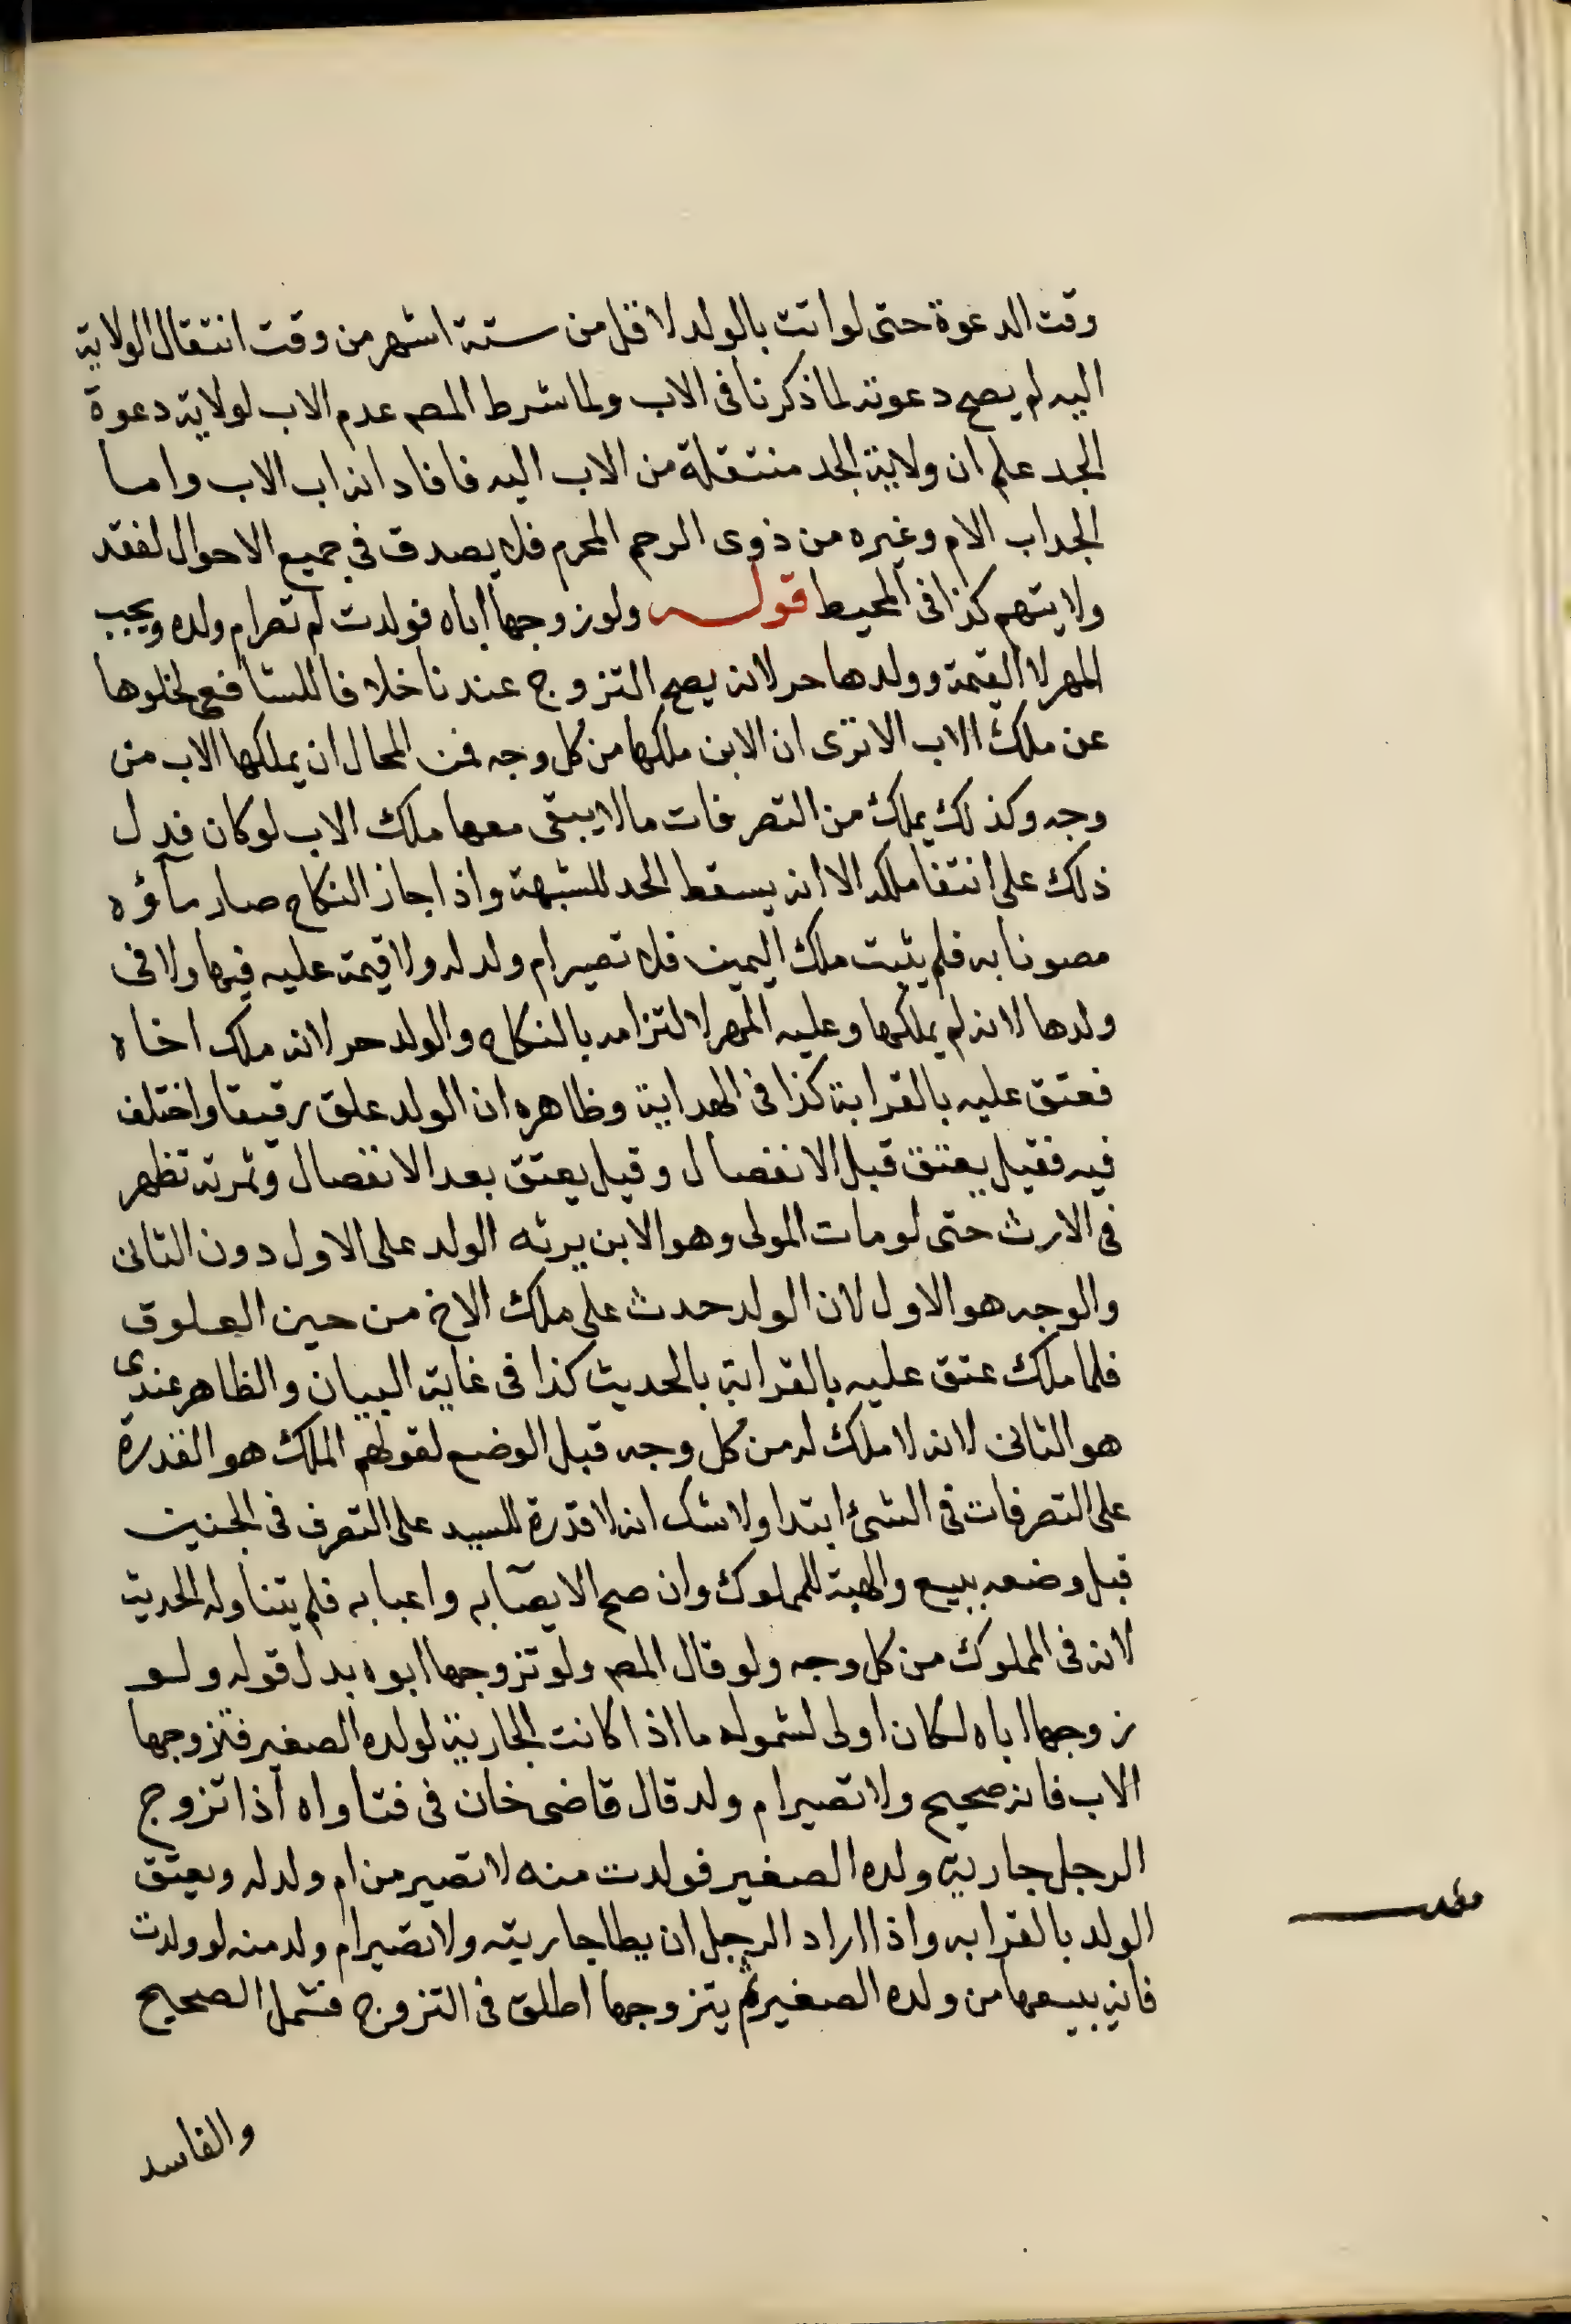 وقت الدعوة حتى لو اتت بالولد لاقل من ستة اشهر من وقت انتقال الولاية
اليه لم يصح دعوته لما ذكرنا فى الاب ولما شرط المصم عدم الاب لولاية دعوة
الجد علم ان ولاية الجد منتقلة من الاب اليه فافاد انه اب الاب واما
الجد اب الام وغيره من ذوى الرحم المحرم فلا يصدق في جميع الاحوال لفقد
ولايتهم كذا فى المحيط قوله ولو زوجها اباه فولدت لم تصر ام ولده ويجب
المهر لا القيمة وولدها حر لانه يصح التزوج عندنا خلافا للشافعى لخلوها
عن ملك الاب الا ترى ان الابن ملكها من كل وجه فمن المحال ان يملكها الاب من
وجه وكذلك يملك من التصرفات ما لا يبقى معها ملك الاب لو كان فدل
ذلك على انتفا ملكه الا انه يسقط الحد للشبهة واذا جاز النكاح صار ماؤه
مصونا به فلم يثبت ملك اليمين فلا تصير ام ولد له ولا قيمة عليه فيها ولا فى
ولدها لانه لم يملكها وعليه المهر لالتزامه بالنكاح والولد حر لانه ملك اخاه
فعتق عليه بالقرابة كذا فى الهداية وظاهره ان الولد علق رقيقا واختلف
فيه فقيل يعتق قبل الانفصال وقيل يعتق بعد الانفصال وثمرته تظهر
فى الارث حتى لو مات المولى وهو الابن يرثه الولد على الاول دون الثانى
والوجه هو الاول لان الولد حدث على ملك الاخ من حين العلوق
فلما ملك عتق عليه بالقرابة بالحديث كذا فى غاية البيان والظاهر عندى
هو الثانى لانه لا ملك له من كل وجه قبل الوضع لقولهم الملك هو القدرة
على التصرفات فى الشئ ابتدا ولا شك انه لا قدرة للسيد على التصرف فى الجنين
قبل وضعه ببيع والهبة للمملوك وان صح الايصآ به واعبا به فلم يتناوله الحديث
لانه فى المملوك من كل وجه ولو قال المصم ولو تزوجها ابوه بدل قوله ولو
زوجها اباه لكان اولى لشموله ما اذا كانت الجارية لولده الصغير فتزوجها
الاب فانه صحيح ولا تصير ام ولد قال قاضى خان فى فتاواه اذا تزوج
الرجل جارية ولده الصغير فولدت منه لا تصير من ام ولد له ويعتق
الولد بالقرابه واذا اراد الرجل ان يطا جاريته ولا تصير ام ولد منه لو ولدت
فانه يبيعها من ولده الصغير ثم يتزوجها اطلق فى التزوج فشمل الصحيح
والفاسد